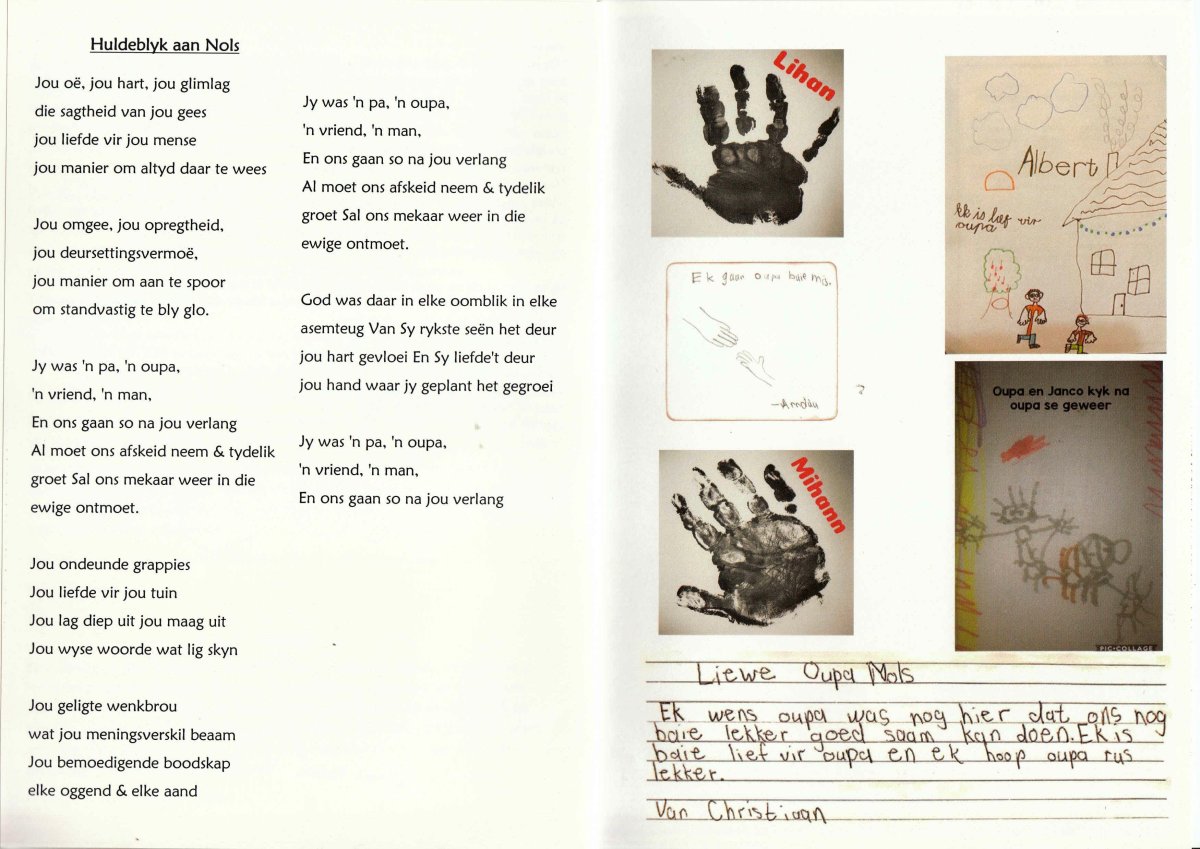 Huldeblyk aan Nols
Jou oë, jou hart, jou glimlag
die sagtheid van jou gees
jou liefde vir jou mense
jou manier om altyd daar te wees
Jou omgee, jou opregtheid,
jou deursettingsvermoë,
jou manier om aan te spoor
om standvastig te bly glo.
Jy was 'n pa, 'n oupa,
'n vriend, 'n man,
En ons gaan so na jou verlang
Al moet ons afskeid neem & tydelik
groet Sal ons mekaar weer in die
ewige ontmoet.
Jou ondeunde grappies
Jou liefde vir jou tuin
Jou lag diep uit jou maag uit
Jou wyse woorde wat lig skyn
Jou geligte wenkbrou
wat jou meningsverskil beaam
Jou bemoedigende boodskap
elke oggend & elke aand
Jy was 'n pa, 'n oupa,
'n vriend, 'n man,
En ons gaan so na jou verlang
Al moet ons afskeid neem & tydelik
groet Sal ons mekaar weer in die
ewige ontmoet.
God was daar in elke oomblik in elke
asemteug Van Sy rykste seën het deur
jou hart gevloei En Sy liefde't deur
jou hand waar jy geplant het gegroei
Jy was 'n pa, 'n oupa,
'n vriend, 'n man,
En ons gaan so na jou verlang
Lihan
Albert
Ek is lief vir
oupa
Ek gaan oupa baie mis.
?
Mihann
Oupa en Janco kyk na
oupa se geweer
PIC•COLLAGE
Liewe Oupa Nols
Ek wens oupa was nog hier dat ons nog
baie lekker goed saam kan doen. Ek is
baie lief vir oupa en ek hoop oupa rus
lekker.
Van Christiaan